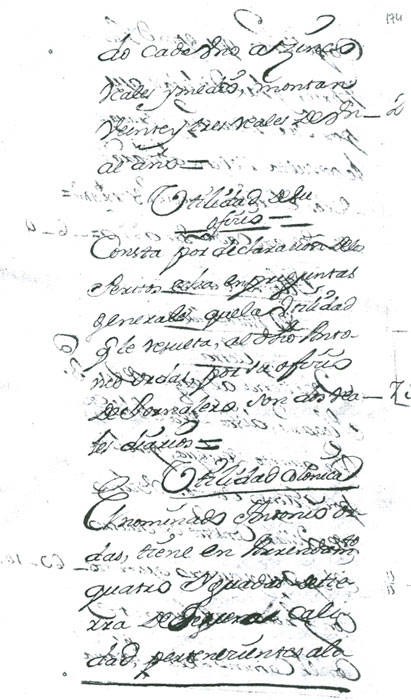 174
do cada Uno a zinco
reales y medio, montan
veinte y tres reales de Vn
al año =
Utilidad de su
oficio =
Consta por declarazion de los
Peritos en preguntas
generales, que la Utilidad
q. le resulta, al dho Anto-
nio Ordas, por su oficio
de Jornalero, son dos rea-
les diarios =
Utilidad Colonica
El nominado Antonio Or-
das, tiene en Arrendamto
quatro Yguadas de tie-
rra de Segunda cali-
dad, pertenezientes a la